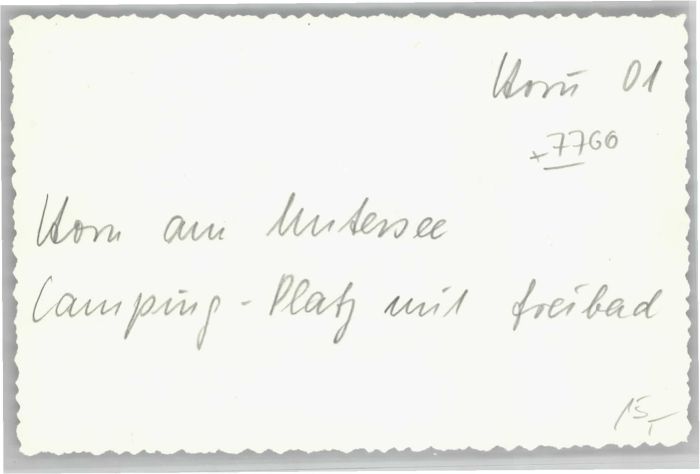 Horn 01
+7760
Horn am Untersee
Camping-Platz mit Freibad
15,-